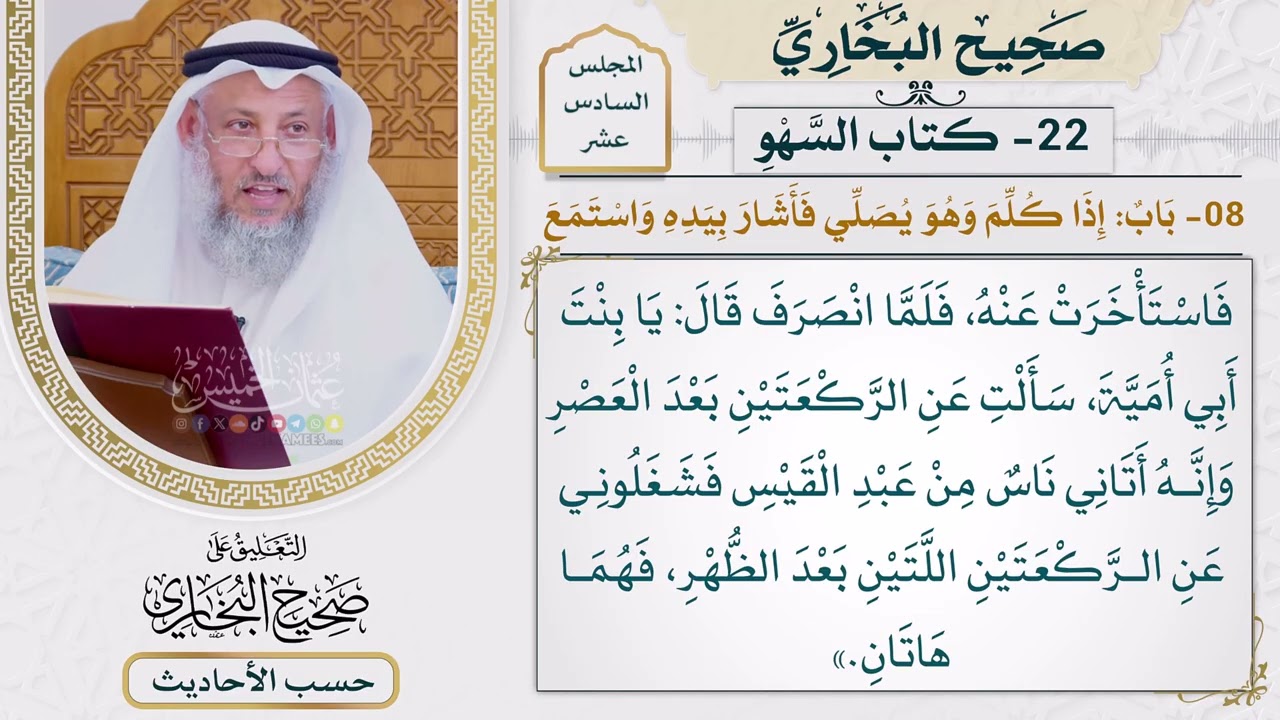 صَحِيح البُخَارِيِّ
22- كتاب السَّهْوِ
المجلس
السادس
عشر
08- بَابٌ: إِذَا كُلِّمَ وَهُوَ يُصَلِّي فَأَشَارَ بِيَدِهِ وَاسْتَمَعَ
فَاسْتَأْخَرَتْ عَنْهُ، فَلَمَّا انْصَرَفَ قَالَ: يَا بِنْتَ
أَبِي أُمَيَّةَ، سَأَلْتِ عَنِ الرَّكْعَتَيْنِ بَعْدَ الْعَصْرِ
وَإِنَّهُ أَتَانِي نَاسٌ مِنْ عَبْدِ الْقَيْسِ فَشَغَلُونِي
عَنِ الرَّكْعَتَيْنِ اللَّتَيْنِ بَعْدَ الظُّهْرِ، فَهُمَا
هَاتَانِ.»
عثمان الخميس
التَّعْلِيقُ عَلَى
صَحِيحِ البُخَارِي
حسب الأحاديث